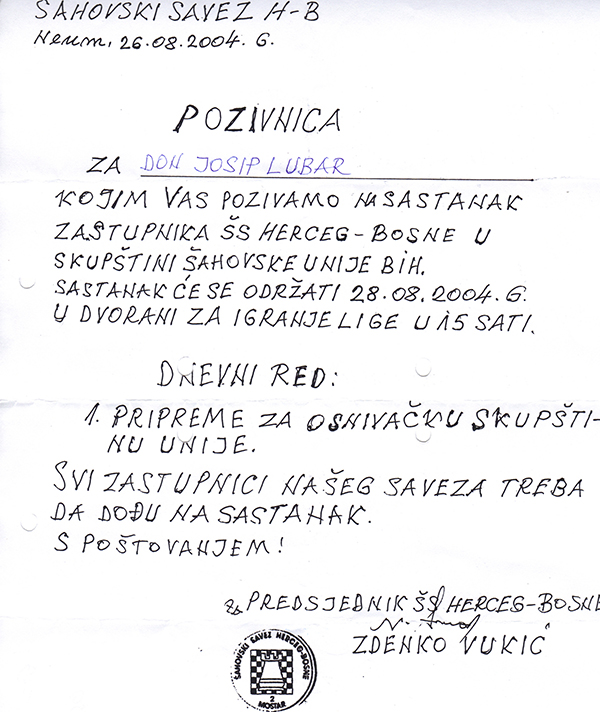 ŠAHOVSKI SAVEZ H-B
Neum, 26.08.2004. G.
POZIVNICA
ZA DON JOSIP LUBAR
KOJIM VAS POZIVAMO NA SASTANAK
ZASTUPNIKA ŠS HERCEG-BOSNE U
SKUPŠTINI ŠAHOVSKE UNIJE BIH.
SASTANAK ĆE SE ODRŽATI 28.08.2004. G.
U DVORANI ZA IGRANJE LIGE U 15 SATI.
DNEVNI RED:
1. PRIPREME ZA OSNIVAČKU SKUPŠTI-
NU UNIJE.
SVI ZASTUPNICI NAŠEG SAVEZA TREBA
DA DOĐU NA SASTANAK.
S POŠTOVANJEM!
za PREDSJEDNIK ŠS HERCEG-BOSNE
ZDENKO VUKIĆ
ŠAHOVSKI SAVEZ HERCEG-BOSNE
2
MOSTAR